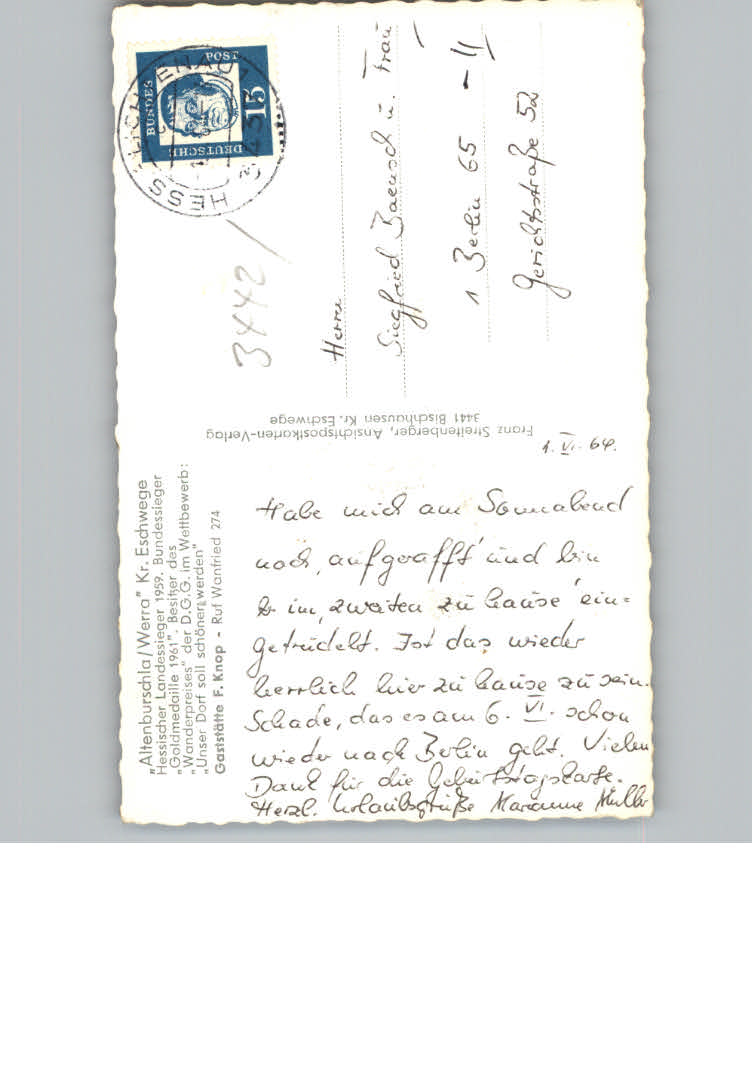 "Altenburschla/Werra" Kr. Eschwege
Hessischer Landessieger 1959. Bundessieger
"Goldmedaille 1961". Besitzer des
"Wanderpreises" der D.G.G. im Wettbewerb:
"Unser Dorf soll schöner werden"
Gaststätte F. Knop - Ruf Wanfried 274
Franz Streitenberger, Ansichtspostkarten-Verlag
3441 Bischhausen Kr. Eschwege
DEUTSCHE
BUNDES
POST
15
HESS. LICHTENAU 1
3442/
Herrn
Siegfried Baensch u. Frau
1 Berlin 65 - 11
Gerichtstraße 52
1. VI. 64.
Habe mich am Sonnabend
noch "aufgerafft" und bin
im "zweiten zu hause" ein=
getrudelt. Ist das wieder
herrlich hier zu hause zu sein.
Schade, das es am 6. VI. schon
wieder nach Berlin geht. Vielen
Dank für die Geburtstagskarte.
Herzl. Urlaubsgrüße Marianne Müller